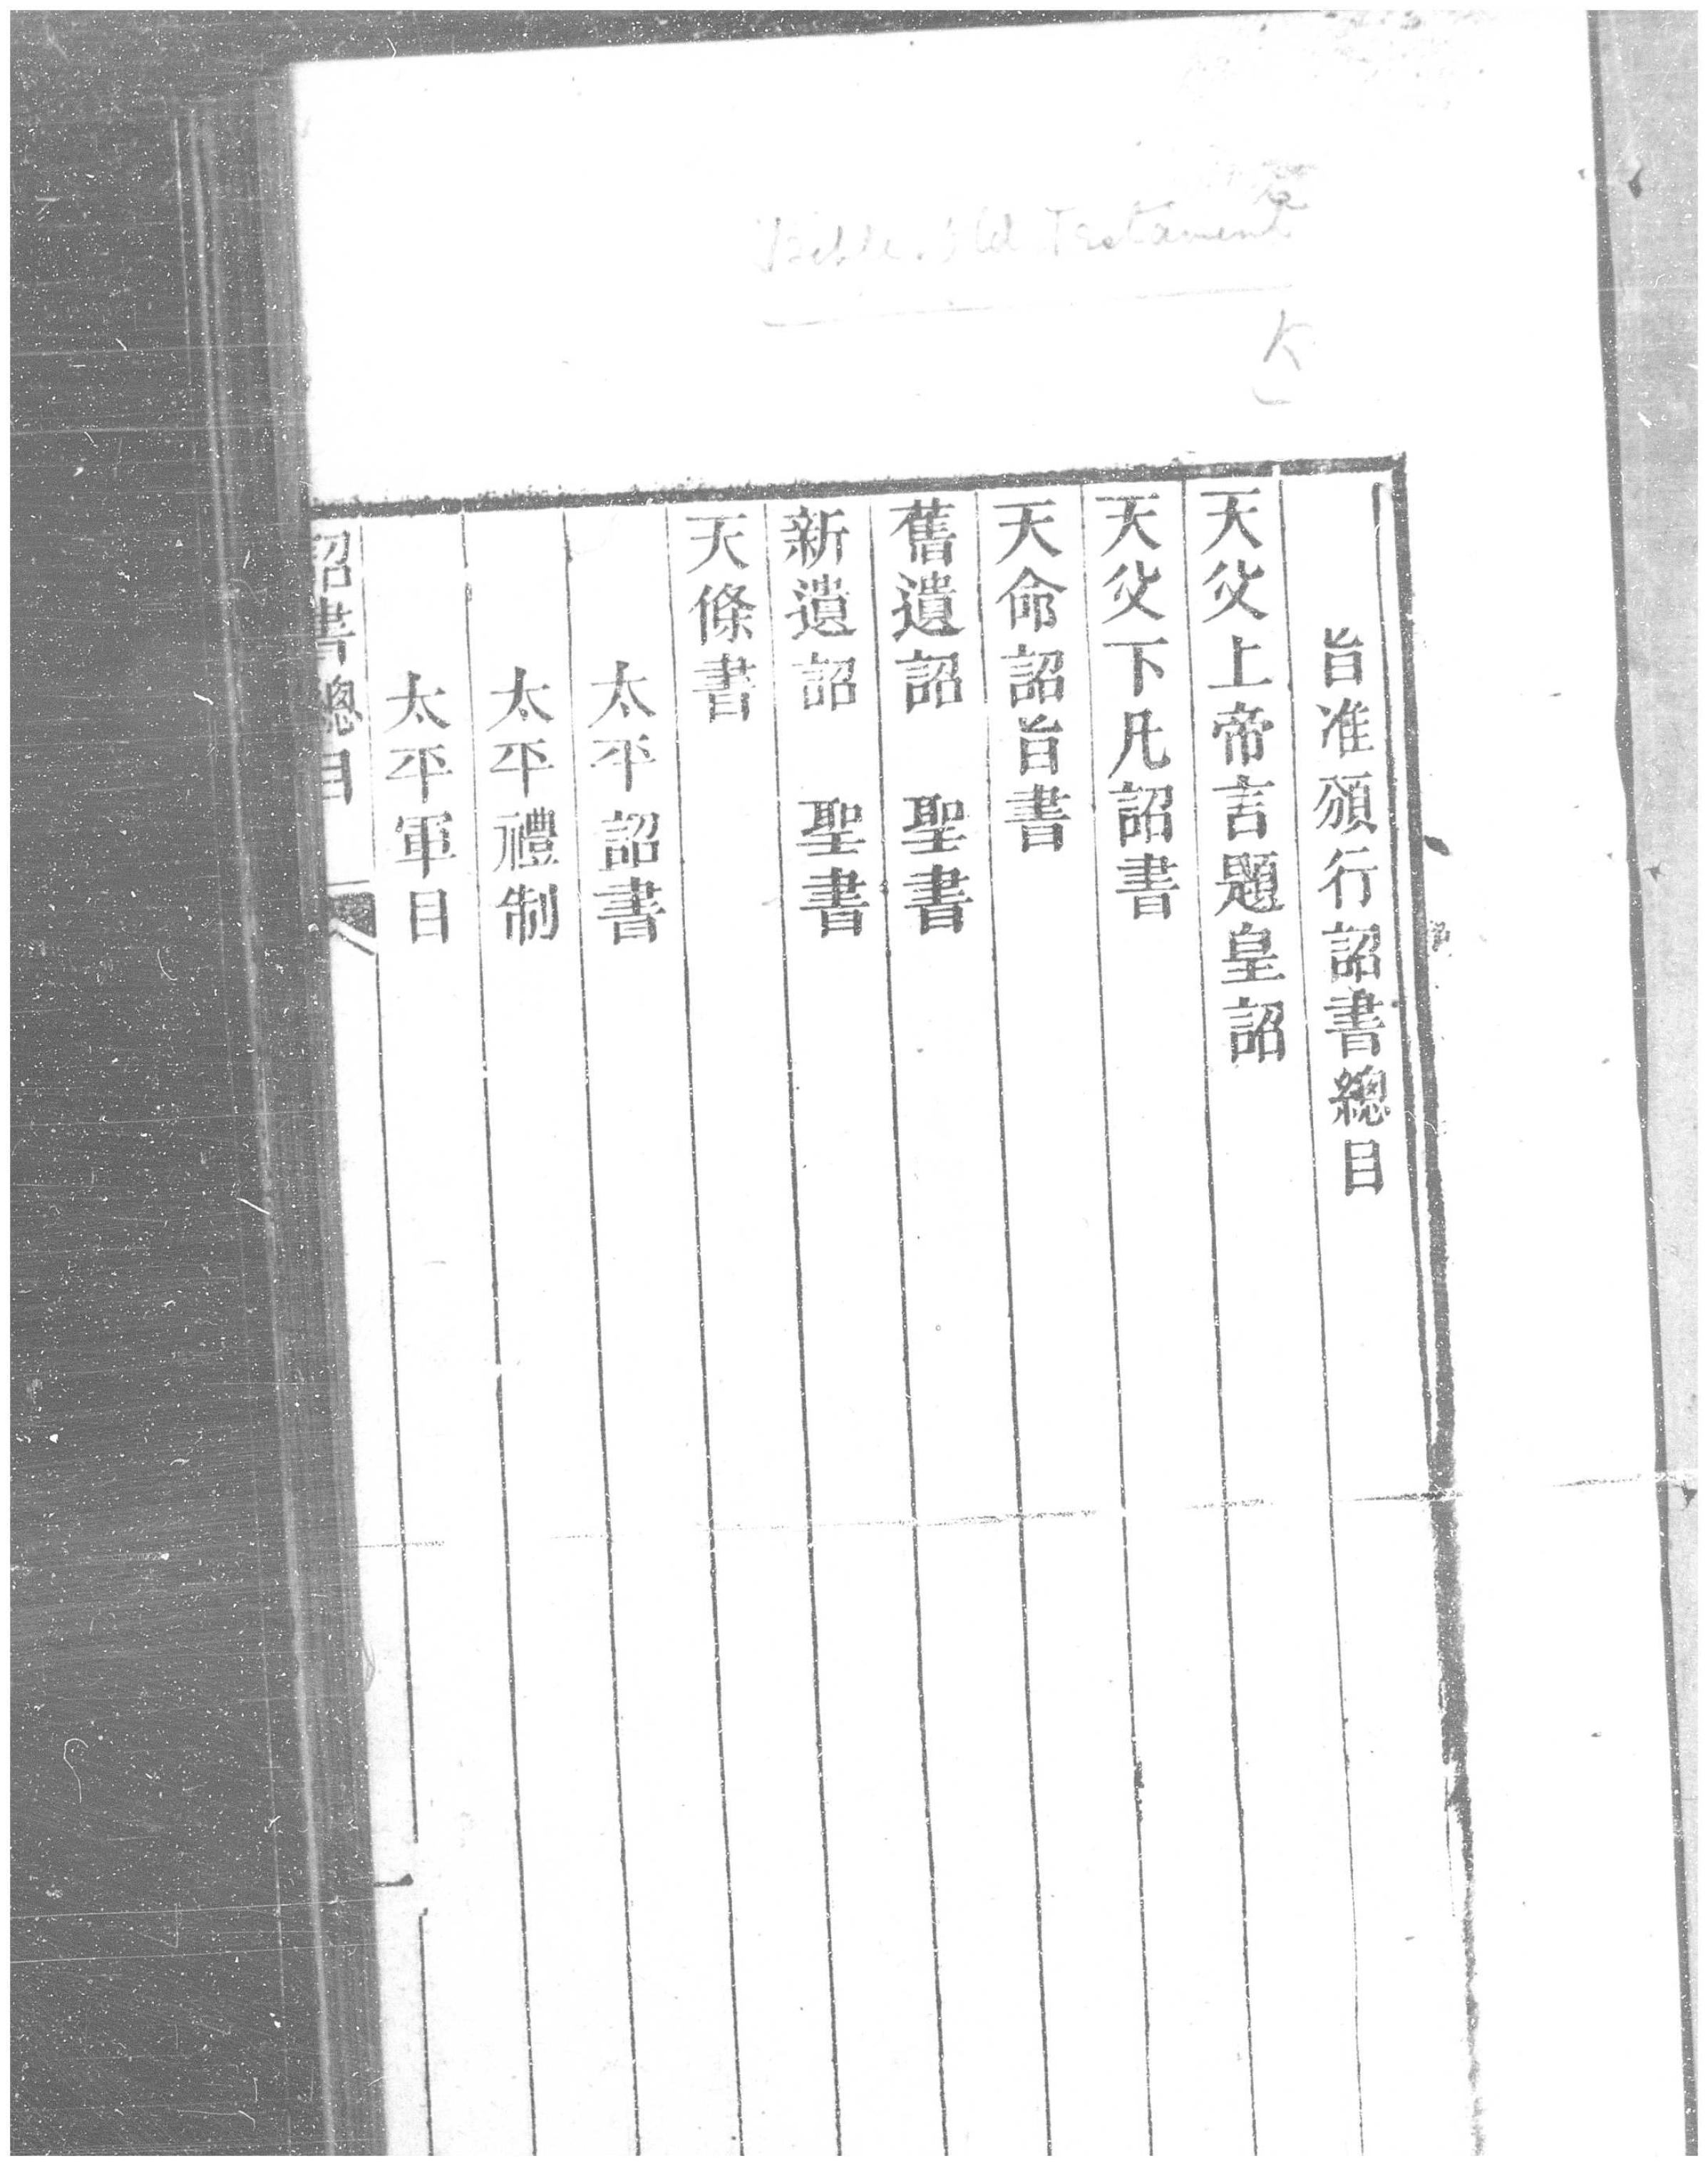 Bible. Old Testament
旨准頒行詔書總目
天父上帝言題皇詔
天父下凡詔書
天命詔旨書
舊遺詔 聖書
新遺詔 聖書
天條書
太平詔書
太平禮制
太平軍目
詔書總目
一